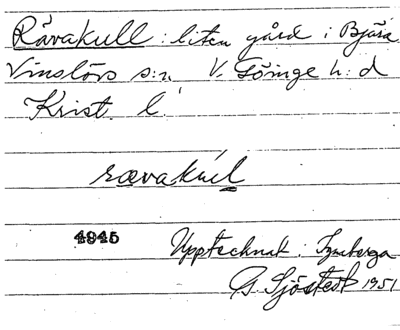 Rävakull: liten gård i Bjära
Vinslövs s:n V. Göinge h:d
Krist. l.
rævakul
4945
Upptecknat i Ignaberga
G. Sjöstedt 1951